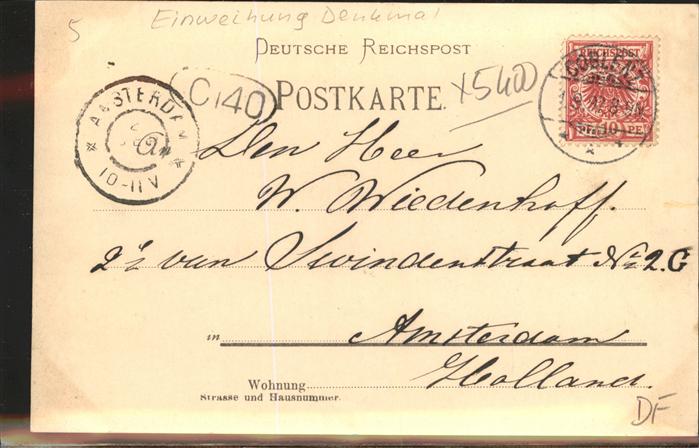 5 Einweihung Denkmal
DEUTSCHE REICHSPOST
REICHSPOST
COBLENZ
10
C140
x5400
POSTKARTE.
AMSTERDAM
10-11V
Den Heer
W. Wiedenhoff.
2e van Swindenstraat No 2.G
in Amsterdam
Holland.
Wohnung
Strasse und Hausnummer.
DF